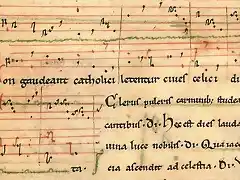 on gaudeant catholici letentur ciues celici di
Clerus pulcris carminib; studea
cantibus · Di · Hec est dies lauda
uina luce nobilis · Di · Qua iaco
cia ascendit ad celestia · Di ·